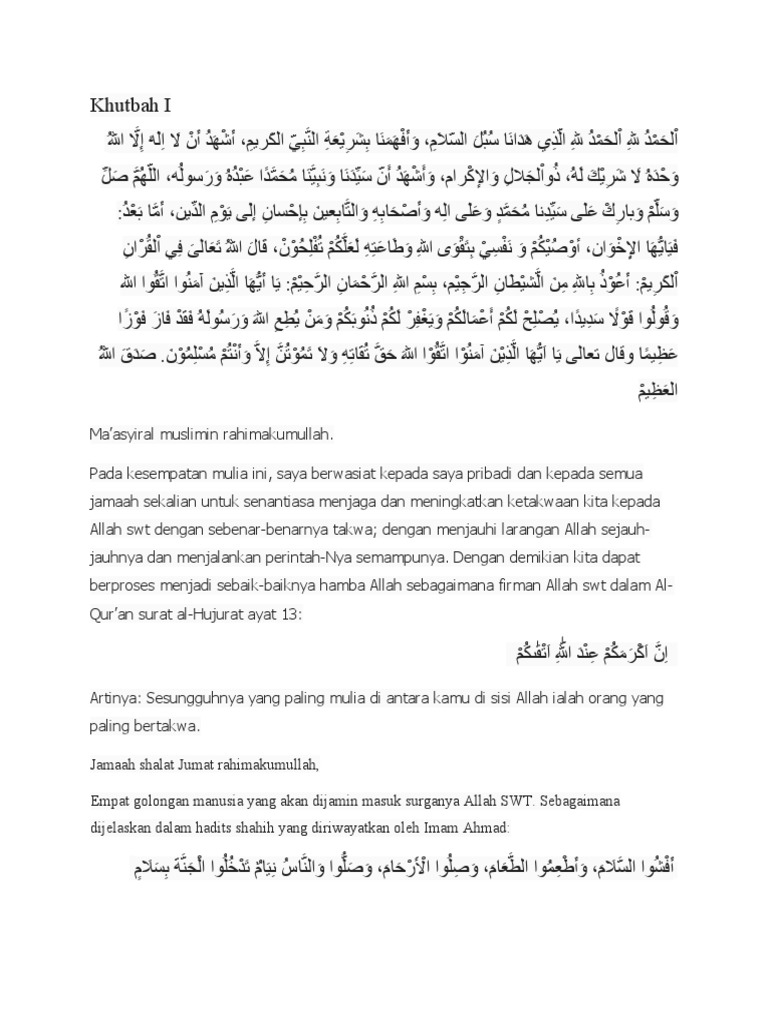 Khutbah I
اَلْحَمْدُ للهِ اَلْحَمْدُ للهِ الَّذِي هَدَانَا سُبُلَ السّلاَمِ، وَأَفْهَمَنَا بِشَرِيْعَةِ النَّبِيّ الكَريمِ، أَشْهَدُ أَنْ لَا اِلٰهَ إِلَّا اللهُ
وَحْدَهُ لَا شَرِيْكَ لَهُ، ذُواْلجَلالِ وَالإكْرام، وَأَشْهَدُ أَنّ سَيِّدَنَا وَنَبِيَّنَا مُحَمَّدًا عَبْدُهُ وَرَسولُه، اللّهُمَّ صَلِّ
وَسَلِّمْ وَبارِكْ عَلَى سَيِّدِنا مُحَمَّدٍ وَعَلَى الِه وَأصْحَابِهِ وَالتَّابِعينَ بِإحْسانِ إلَى يَوْمِ الدِّين، أَمَّا بَعْدُ:
فَيَايُّهَا الإِخْوَان، أُوْصِيْكُمْ وَ نَفْسِيْ بِتَقْوَى اللهِ وَطَاعَتِهِ لَعَلَّكُمْ تُفْلِحُوْنْ، قَالَ اللهُ تَعَالىَ فِي اْلقُرْانِ
اْلكَرِيمْ: أَعُوْذُ بِاللهِ مِنَ الَّشيْطَانِ الرَّجِيْم، بِسْمِ اللهِ الرَّحْمَانِ الرَّحِيْمْ: يَا أَيُّهَا الَّذِينَ آمَنُوا اتَّقُوا الله
وَقُولُوا قَوْلًا سَدِيدًا، يُصْلِحْ لَكُمْ أَعْمَالَكُمْ وَيَغْفِرْ لَكُمْ ذُنُوبَكُمْ وَمَنْ يُطِعِ اللهَ وَرَسُولَهُ فَقَدْ فَازَ فَوْزًا
عَظِيمًا وقال تعالى يَا اَيُّهَا الَّذِيْنَ آمَنُوْا اتَّقُوْا اللهَ حَقَّ تُقَاتِهِ وَلاَ تَمُوْتُنَّ إِلاَّ وَأَنْتُمْ مُسْلِمُوْنَ. صَدَقَ اللهُ
العَظِيمْ
Ma’asyiral muslimin rahimakumullah.
Pada kesempatan mulia ini, saya berwasiat kepada saya pribadi dan kepada semua
jamaah sekalian untuk senantiasa menjaga dan meningkatkan ketakwaan kita kepada
Allah swt dengan sebenar-benarnya takwa; dengan menjauhi larangan Allah sejauh-
jauhnya dan menjalankan perintah-Nya semampunya. Dengan demikian kita dapat
berproses menjadi sebaik-baiknya hamba Allah sebagaimana firman Allah swt dalam Al-
Qur’an surat al-Hujurat ayat 13:
اِنَّ اَكْرَمَكُمْ عِنْدَ اللّٰهِ اَتْقٰىكُمْ
Artinya: Sesungguhnya yang paling mulia di antara kamu di sisi Allah ialah orang yang
paling bertakwa.
Jamaah shalat Jumat rahimakumullah,
Empat golongan manusia yang akan dijamin masuk surganya Allah SWT. Sebagaimana
dijelaskan dalam hadits shahih yang diriwayatkan oleh Imam Ahmad:
أَفْشُوا السَّلَامَ، وَأَطْعِمُوا الطَّعَامَ، وَصِلُوا الْأَرْحَامَ، وَصَلُّوا وَالنَّاسُ نِيَامٌ تَدْخُلُوا الْجَنَّةَ بِسَلَامٍ